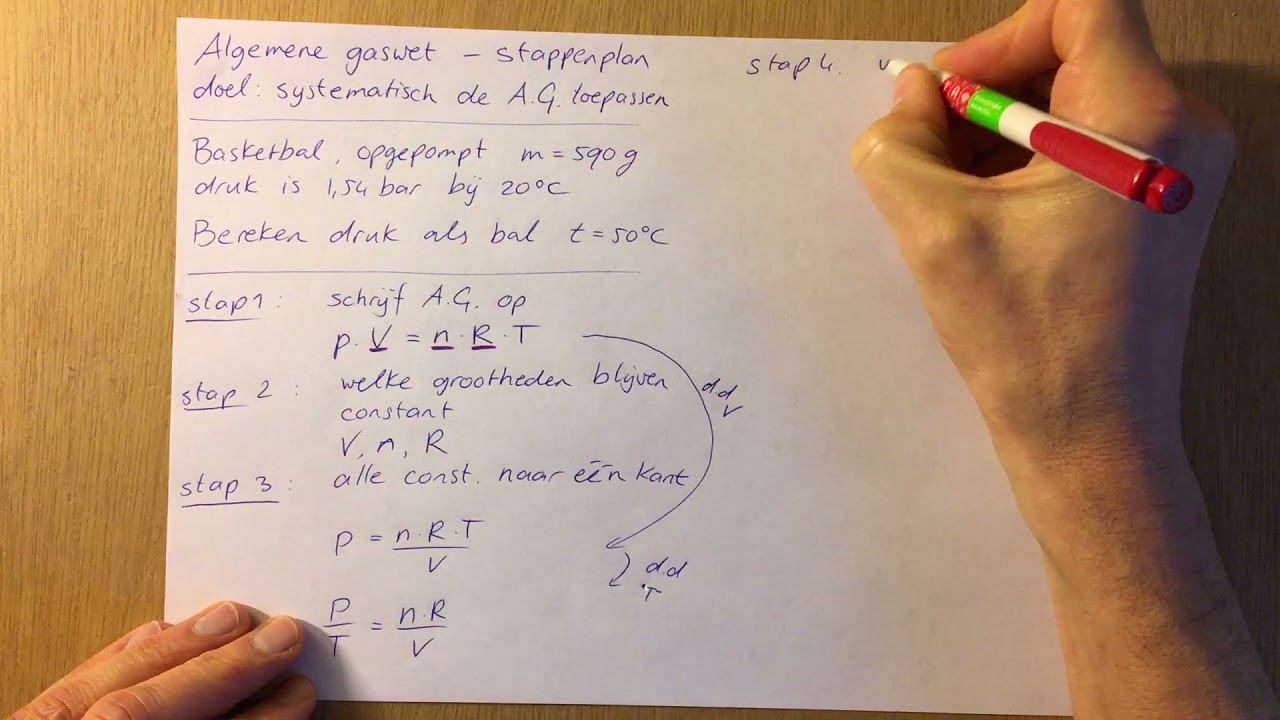 Algemene gaswet - stappenplan
doel: systematisch de A.G. toepassen
Basketbal, opgepompt m = 590 g
druk is 1,54 bar bij 20°C
Bereken druk als bal t = 50°C
stap 1: schrijf A.G. op
p · V = n · R · T
stap 2: welke grootheden blijven
constant
V, n, R
stap 3: alle const. naar één kant
d.d
V
P = n·R·T / V
d.d
T
P / T = n·R / V
stap 4.